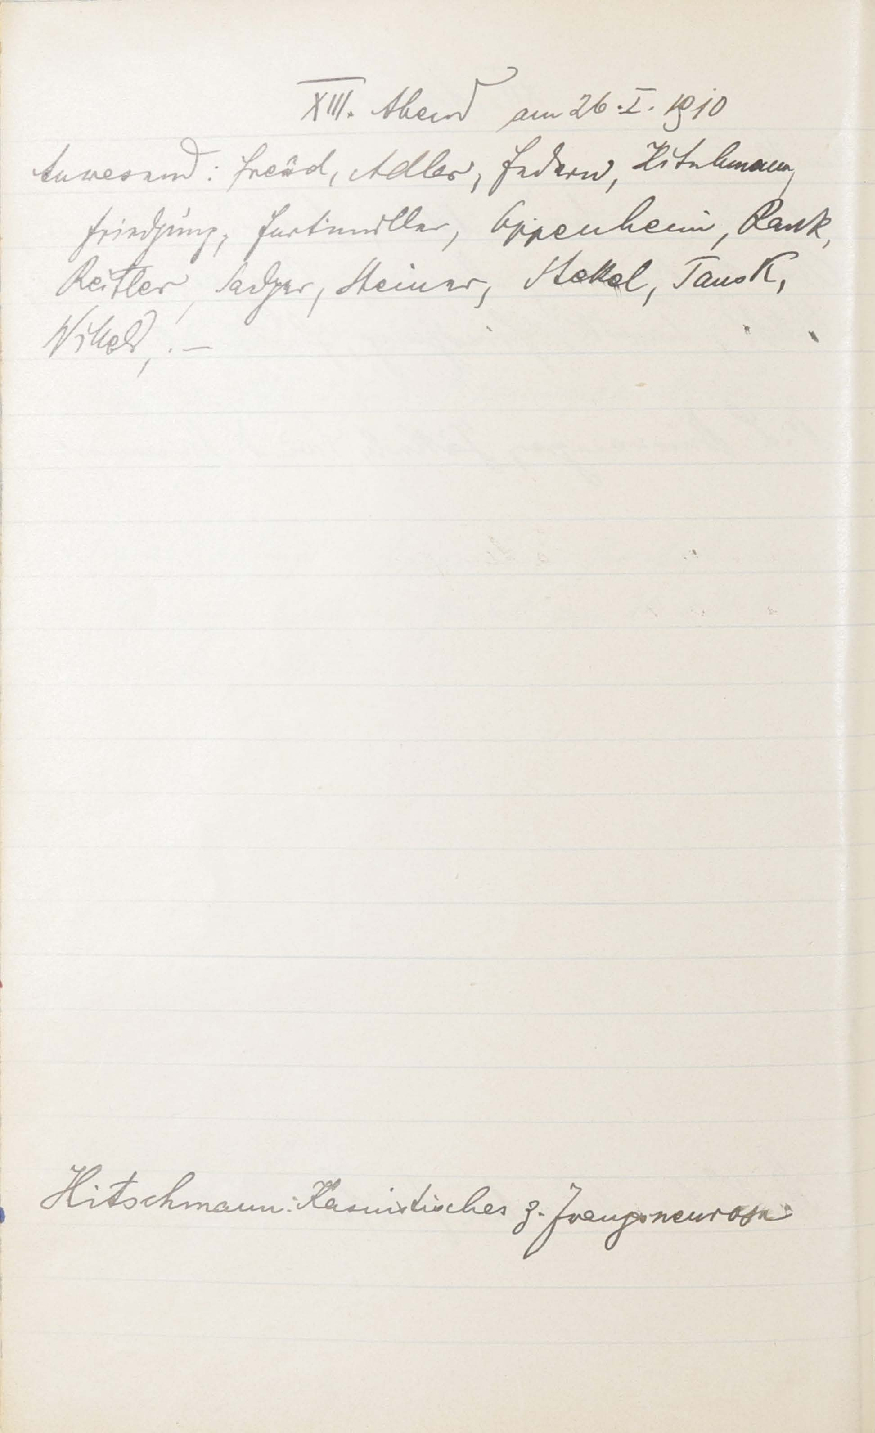 XIII. Abend am 26.I.1910
Anwesend: Freud, Adler, Federn, Hitschmann,
Friedjung, Furtmüller, Oppenheim, Rank,
Reitler, Sadger, Steiner, Stekel, Tausk,
.—
Hitschmann: Kasuistisches z. Zwangsneurose